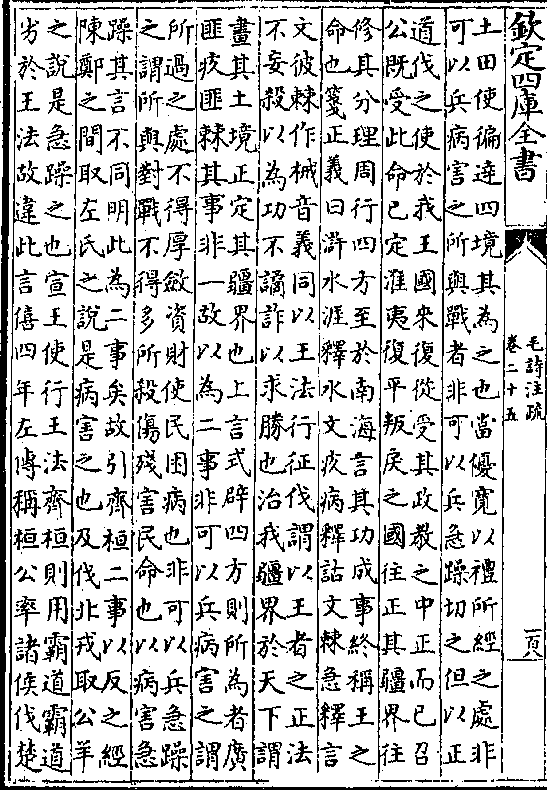 欽定四庫全書
毛詩注疏
卷二十五
一百八
土田使徧達四境其為之也當優寛以禮所經之處非
可以兵病害之所與戰者非可以兵急躁切之但以正
道伐之使於我王國來復從受其政教之中正而已召
公既受此命已定淮夷復平叛戾之國往正其疆界往
修其分理周行四方至於南海言其功成事終稱王之
命也箋正義曰滸水涯釋水文疚病釋詁文棘急釋言
文彼棘作悈音義同以王法行征伐謂以王者之正法
不妄殺以為功不譎詐以求勝也治我疆界於天下謂
畫其土境正定其疆界也上言式辟四方則所為者廣
匪疚匪棘其事非一故以為二事非可以兵病害之謂
所過之處不得厚斂資財使民困病也非可以兵急躁
之謂所與對戰不得多所殺傷殘害民命也以病害急
躁其言不同明此為二事矣故引齊桓二事以反之經
陳鄭之間取左氏之說是病害之也及伐北戎取公羊
之說是急躁之也宣王使行王法齊桓則用霸道霸道
劣於王法故違此言僖四年左傳稱桓公率諸侯伐楚